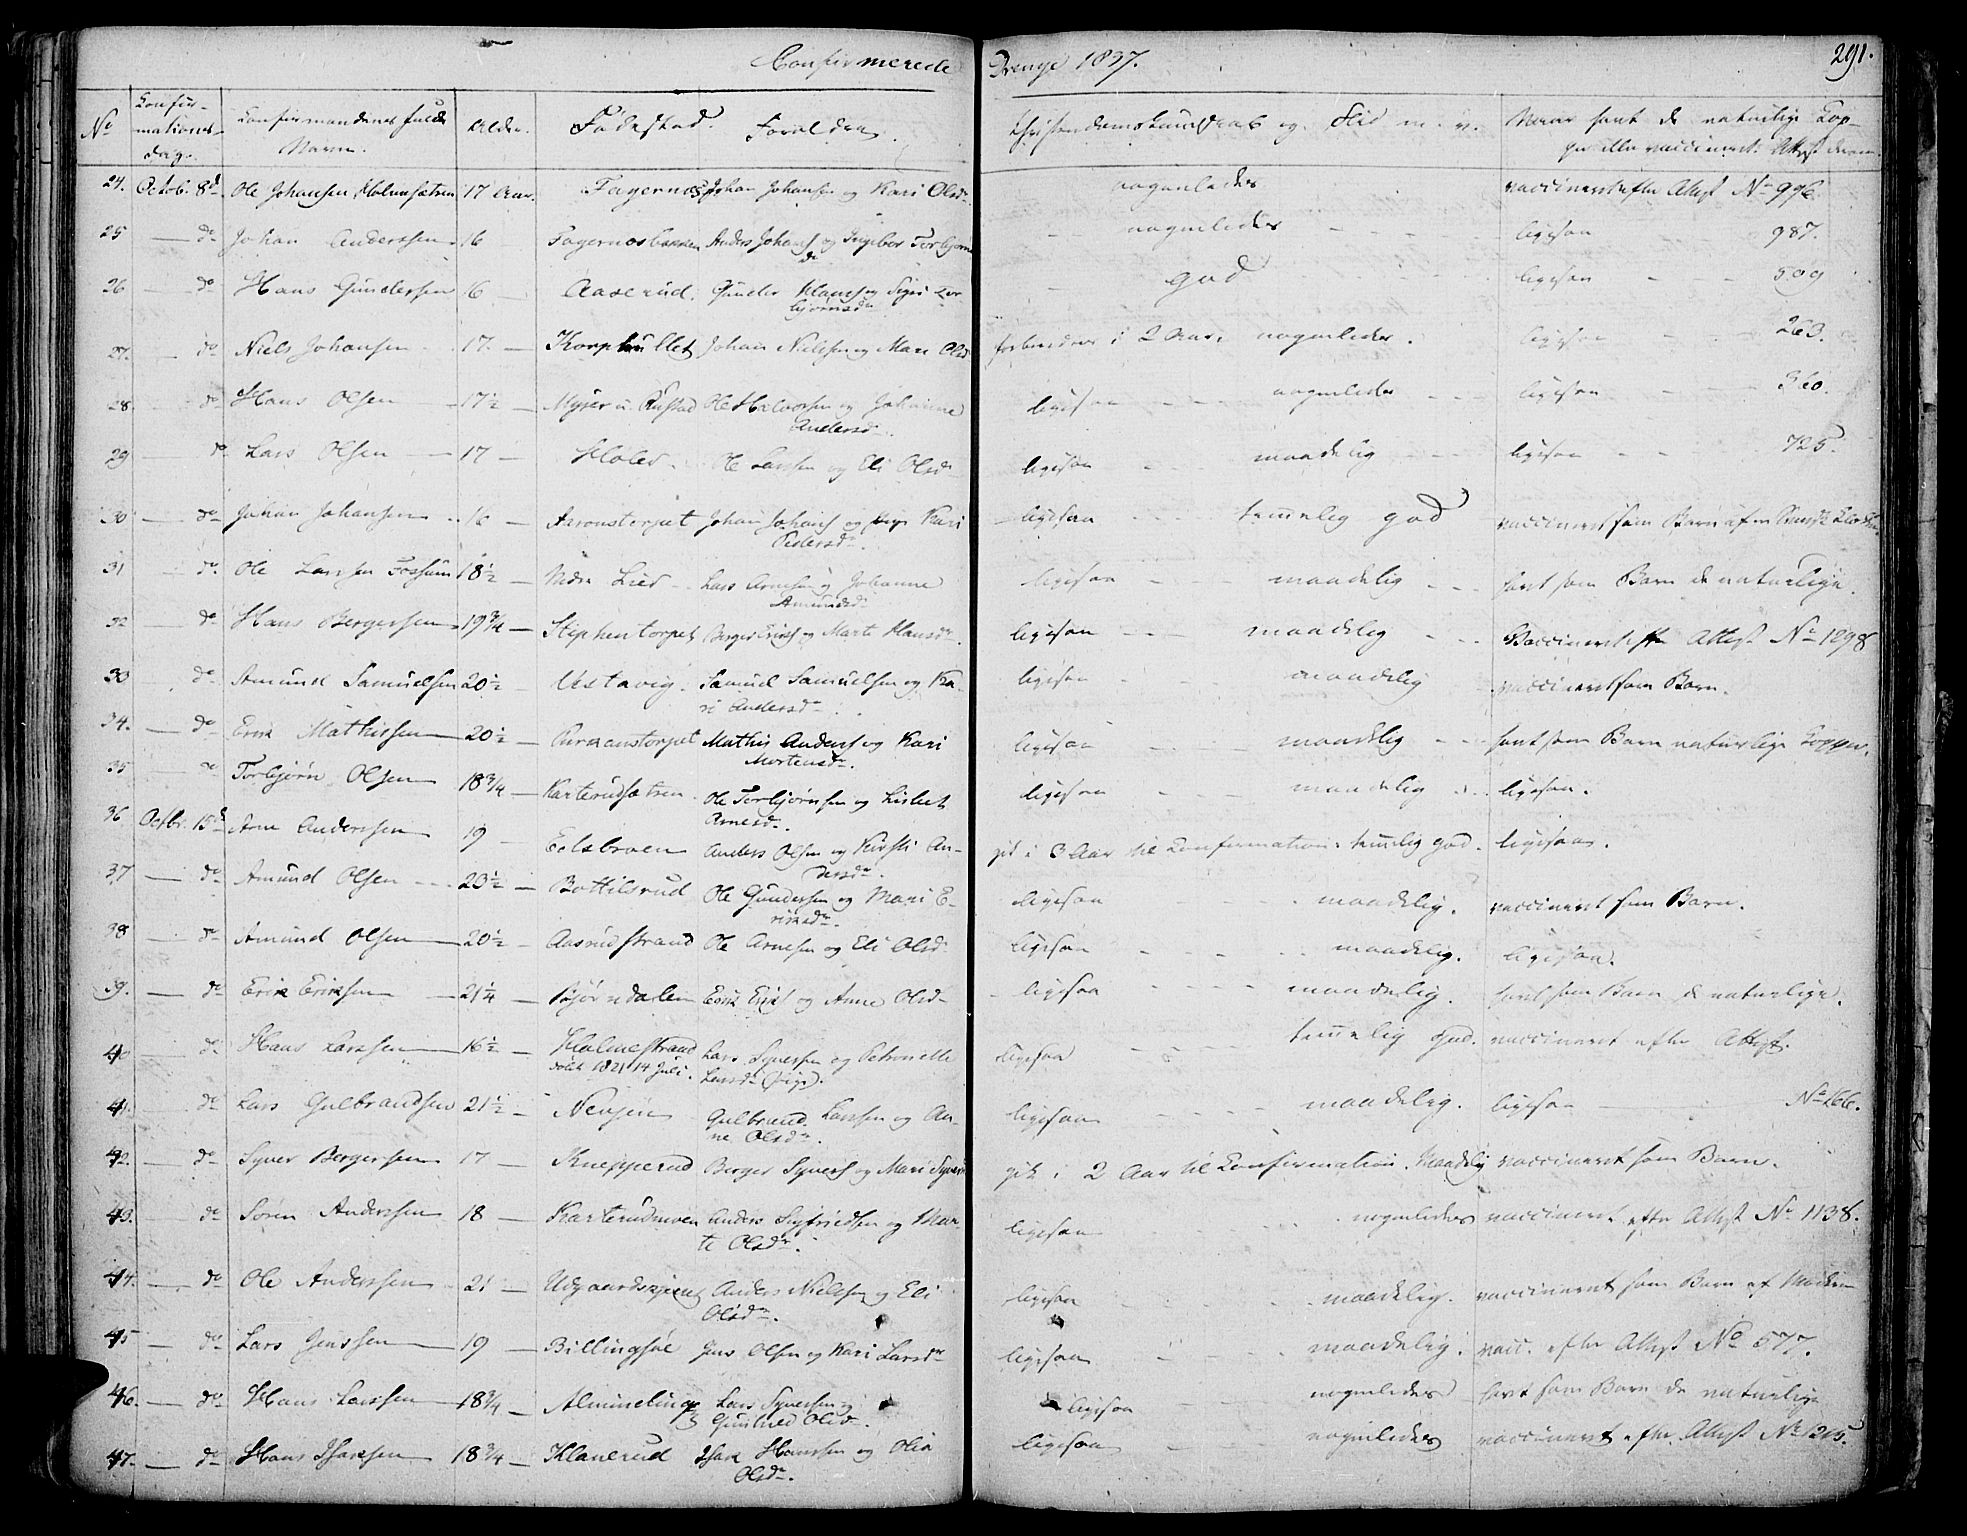 Confirmerede Drenge 1837. 291.
No Confirmationsdag. Confirmandens fulde Navn. Alder. Fødested. Forældre. Christendomskundskab og Flid m. v. Naar havt de naturlige Kopper eller vaccineret. Attest derom.
24. Octob. 8d Ole Johansen Holmsætren 17 Aar. Fagernæs Johan Johansen og Kari Olsdr nogenledes vaccineret efter Attest No 996.
25 — do Johan Anderssen 16 Fagernesbakken Anders Johans og Ingebor Torbjørnsdr nogenledes ligesaa 987.
26 — do Hans Gunderssen 16 — Aaserud. Gunder Hansen og Sigri Torbjørnsdr god ligesaa 509
27. — do Niels Johansen 17. — Korphullet Johan Nielssen og Mari Olsd forberedes i 2 Aar. nogenledes. ligesaa 263.
28. — do Hans Olsen 17½ — Myser u. Rustad Ole Halvorsen og Johanne Andersdr. ligesaa nogenledes ligesaa 360.
29 — do Lars Olsen 17 — Holed. Ole Larssen og Eli Olsdr ligesaa maadelig ligesaa 725.
30 — do Johan Johansen 16 — Aaronstorpet Johan Johans og Kari Pedersdr. ligesaa temmelig god vaccineret som Barn af en
31 — do Ole Larssen Fossum 18½ — Nedre Lied Lars Arnesen og Johanne Amundsdr ligesaa maadelig havt som Barn de naturlige.
32 — do Hans Bergersen 19¾ — Stephentorpet Berger Eriks og Marte Hansdr. ligesaa maadelig Vaccineret efter Attest No 1298
30 — do Amund Samuelsen 20½ — Ustavig. Samuel Samuelsen og Kari Andersdr. ligesaa maadelig vaccineret som Barn.
34. — do Erik Mathissen 20½ — Mathis Anders og Kari Mortensdr. ligesaa maadelig havt som Barn naturlige Kopper.
35 — do Torbjørn Olsen 18¾ — Karterudsætren Ole Torbjørnsen og Lisbet Arnesdr. ligesaa maadelig ligesaa.
36 Octbr. 15d Arne Anderssen 19 — Eidsbraaten Anders Olsen og Kirsti Andersdr. gik i 3 Aar til Confirmation. temlig god. ligesaa.
37 — do Amund Olsen 23½ — Bottilsrud Ole Gunderssen og Mari Eriksdr. ligesaa maadelig. vaccineret som Barn.
38 — do Amund Olsen 20½ — Aasrudstrand Ole Arnesen og Eli Olsd ligesaa maadelig. ligesaa.
39. — do Erik Eriksen 21¼ — Bjørndalen Erik Eriks og Anne Olsd ligesaa maadelig. havt som Barn de naturlige.
40 do Hans Larssen 16½ — Holmestrand født 1821 14 Juli. Lars Syversen og Petronelle Larsdr (pige). ligesaa temmelig God. vaccineret efter Attest.
41. do Lars Gulbrandsen 21½ — Nensjen Gulbrand Larssen og Anne Olsdr. ligesaa maadelig. ligesaa No 166.
42. — do Syver Bergersen 17 — Knepperud Berger Syvers og Mari Syversd gik i 2 Aar til Confirmation. Maadelig vaccineret som Barn.
43. — do Søren Anderssen 18 — Karterudmoen Anders Sigfriedsen og Marte Olsdr. ligesaa nogenledes vaccineret efter Attest No 1138.
44. — do Ole Anderssen 21 — Udgaardseiet Anders Nielssen og Eli Olsdr. ligesaa maadelig. vaccineret som Barn af Moderen
45 — do Lars Jenssen 19 — Billingsøe Jens Olsen og Kari Larsdr ligesaa maadelig. vacc. efter Attest No 577.
46. — do Hans Larssen 18¾ — Alminding Lars Syversen og Gunhild Olsdr. ligesaa nogenledes havt som Barn de naturlige
47. — do Hans Isaksen 18¾ — Klanerud Isak Hanssen og Olia Olsdr. ligesaa nogenledes vaccineret efter Attest No 1205.